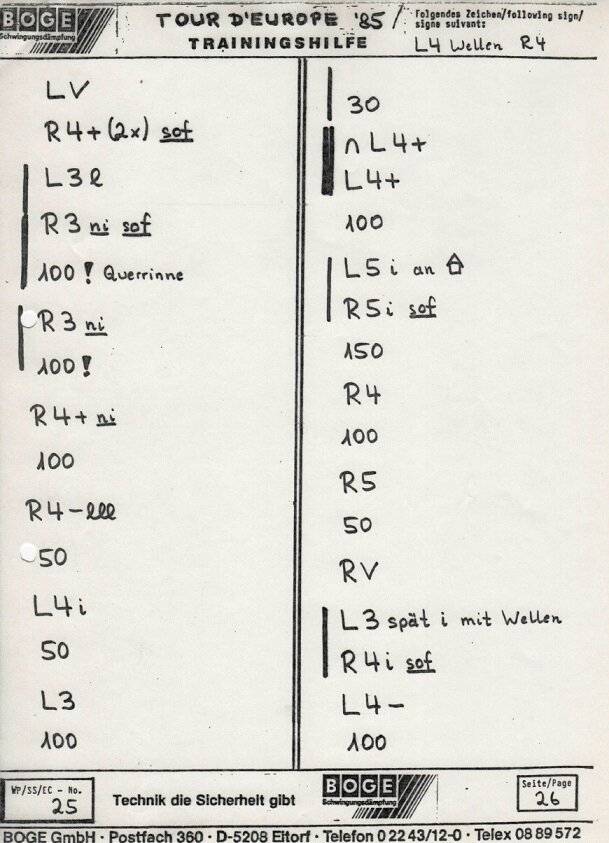 BOGE
Schwingungsdämpfung
TOUR D'EUROPE '85
TRAININGSHILFE
Folgendes Zeichen/following sign/
signe suivant:
L4 Wellen R4
LV
R4+ (2x) sof
L3 l
R3 ni sof
100 ! Querrinne
R3 ni
100 !
R4+ ni
100
R4- lll
50
L4 i
50
L3
100
30
∩ L4+
L4+
100
L5 i an
R5 i sof
150
R4
100
R5
50
RV
L3 spät i mit Wellen
R4 i sof
L4-
100
WP/SS/EC - No.
25
Technik die Sicherheit gibt
BOGE
Schwingungsdämpfung
Seite/Page
26
BOGE GmbH · Postfach 360 · D-5208 Eitorf · Telefon 0 22 43/12-0 · Telex 08 89 572